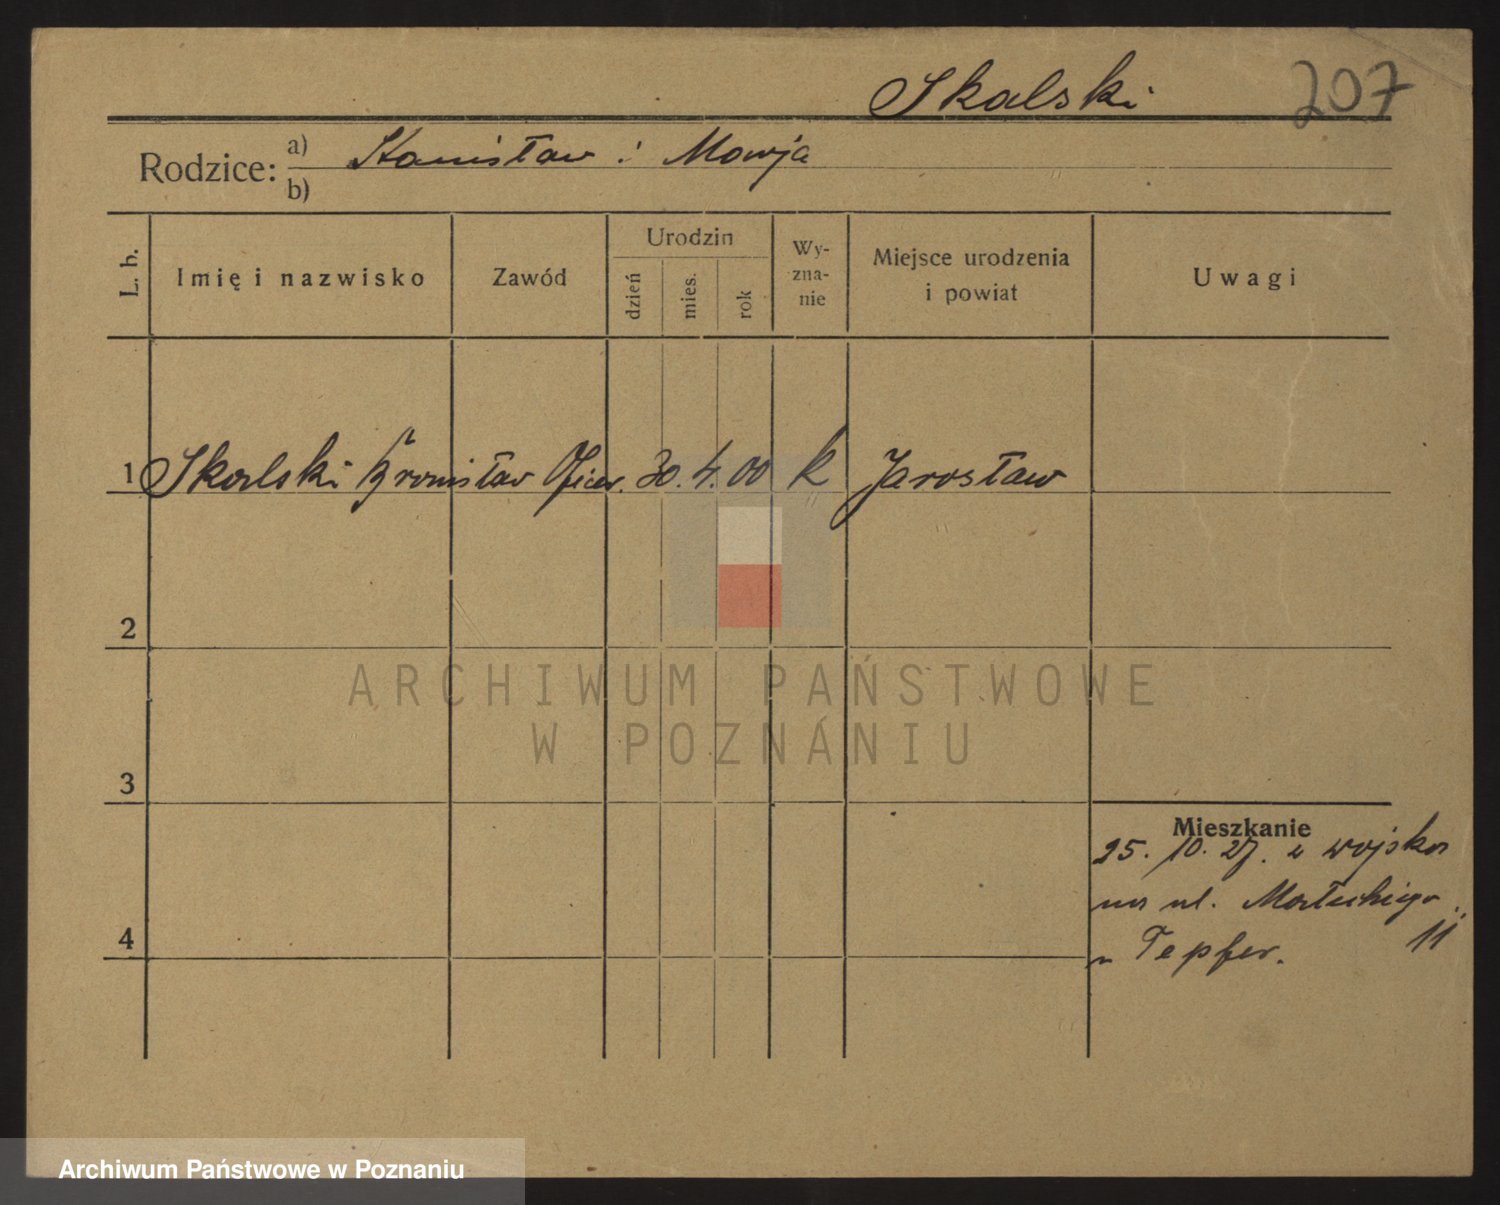 Skalski 207
Rodzice: a) Stanisław i Marja
b)
L. b. Imię i nazwisko Zawód Urodzin dzień mies. rok Wy-zna-nie Miejsce urodzenia i powiat Uwagi
1 Skalski Bronisław Oficer. 30. 4. 00 k Jarosław
2
ARCHIWUM PAŃSTWOWE
W POZNANIU
3
Mieszkanie
25. 10. 27. z wojska
na ul. Małeckiego
11
4
u Tepfer.
Archiwum Państwowe w Poznaniu